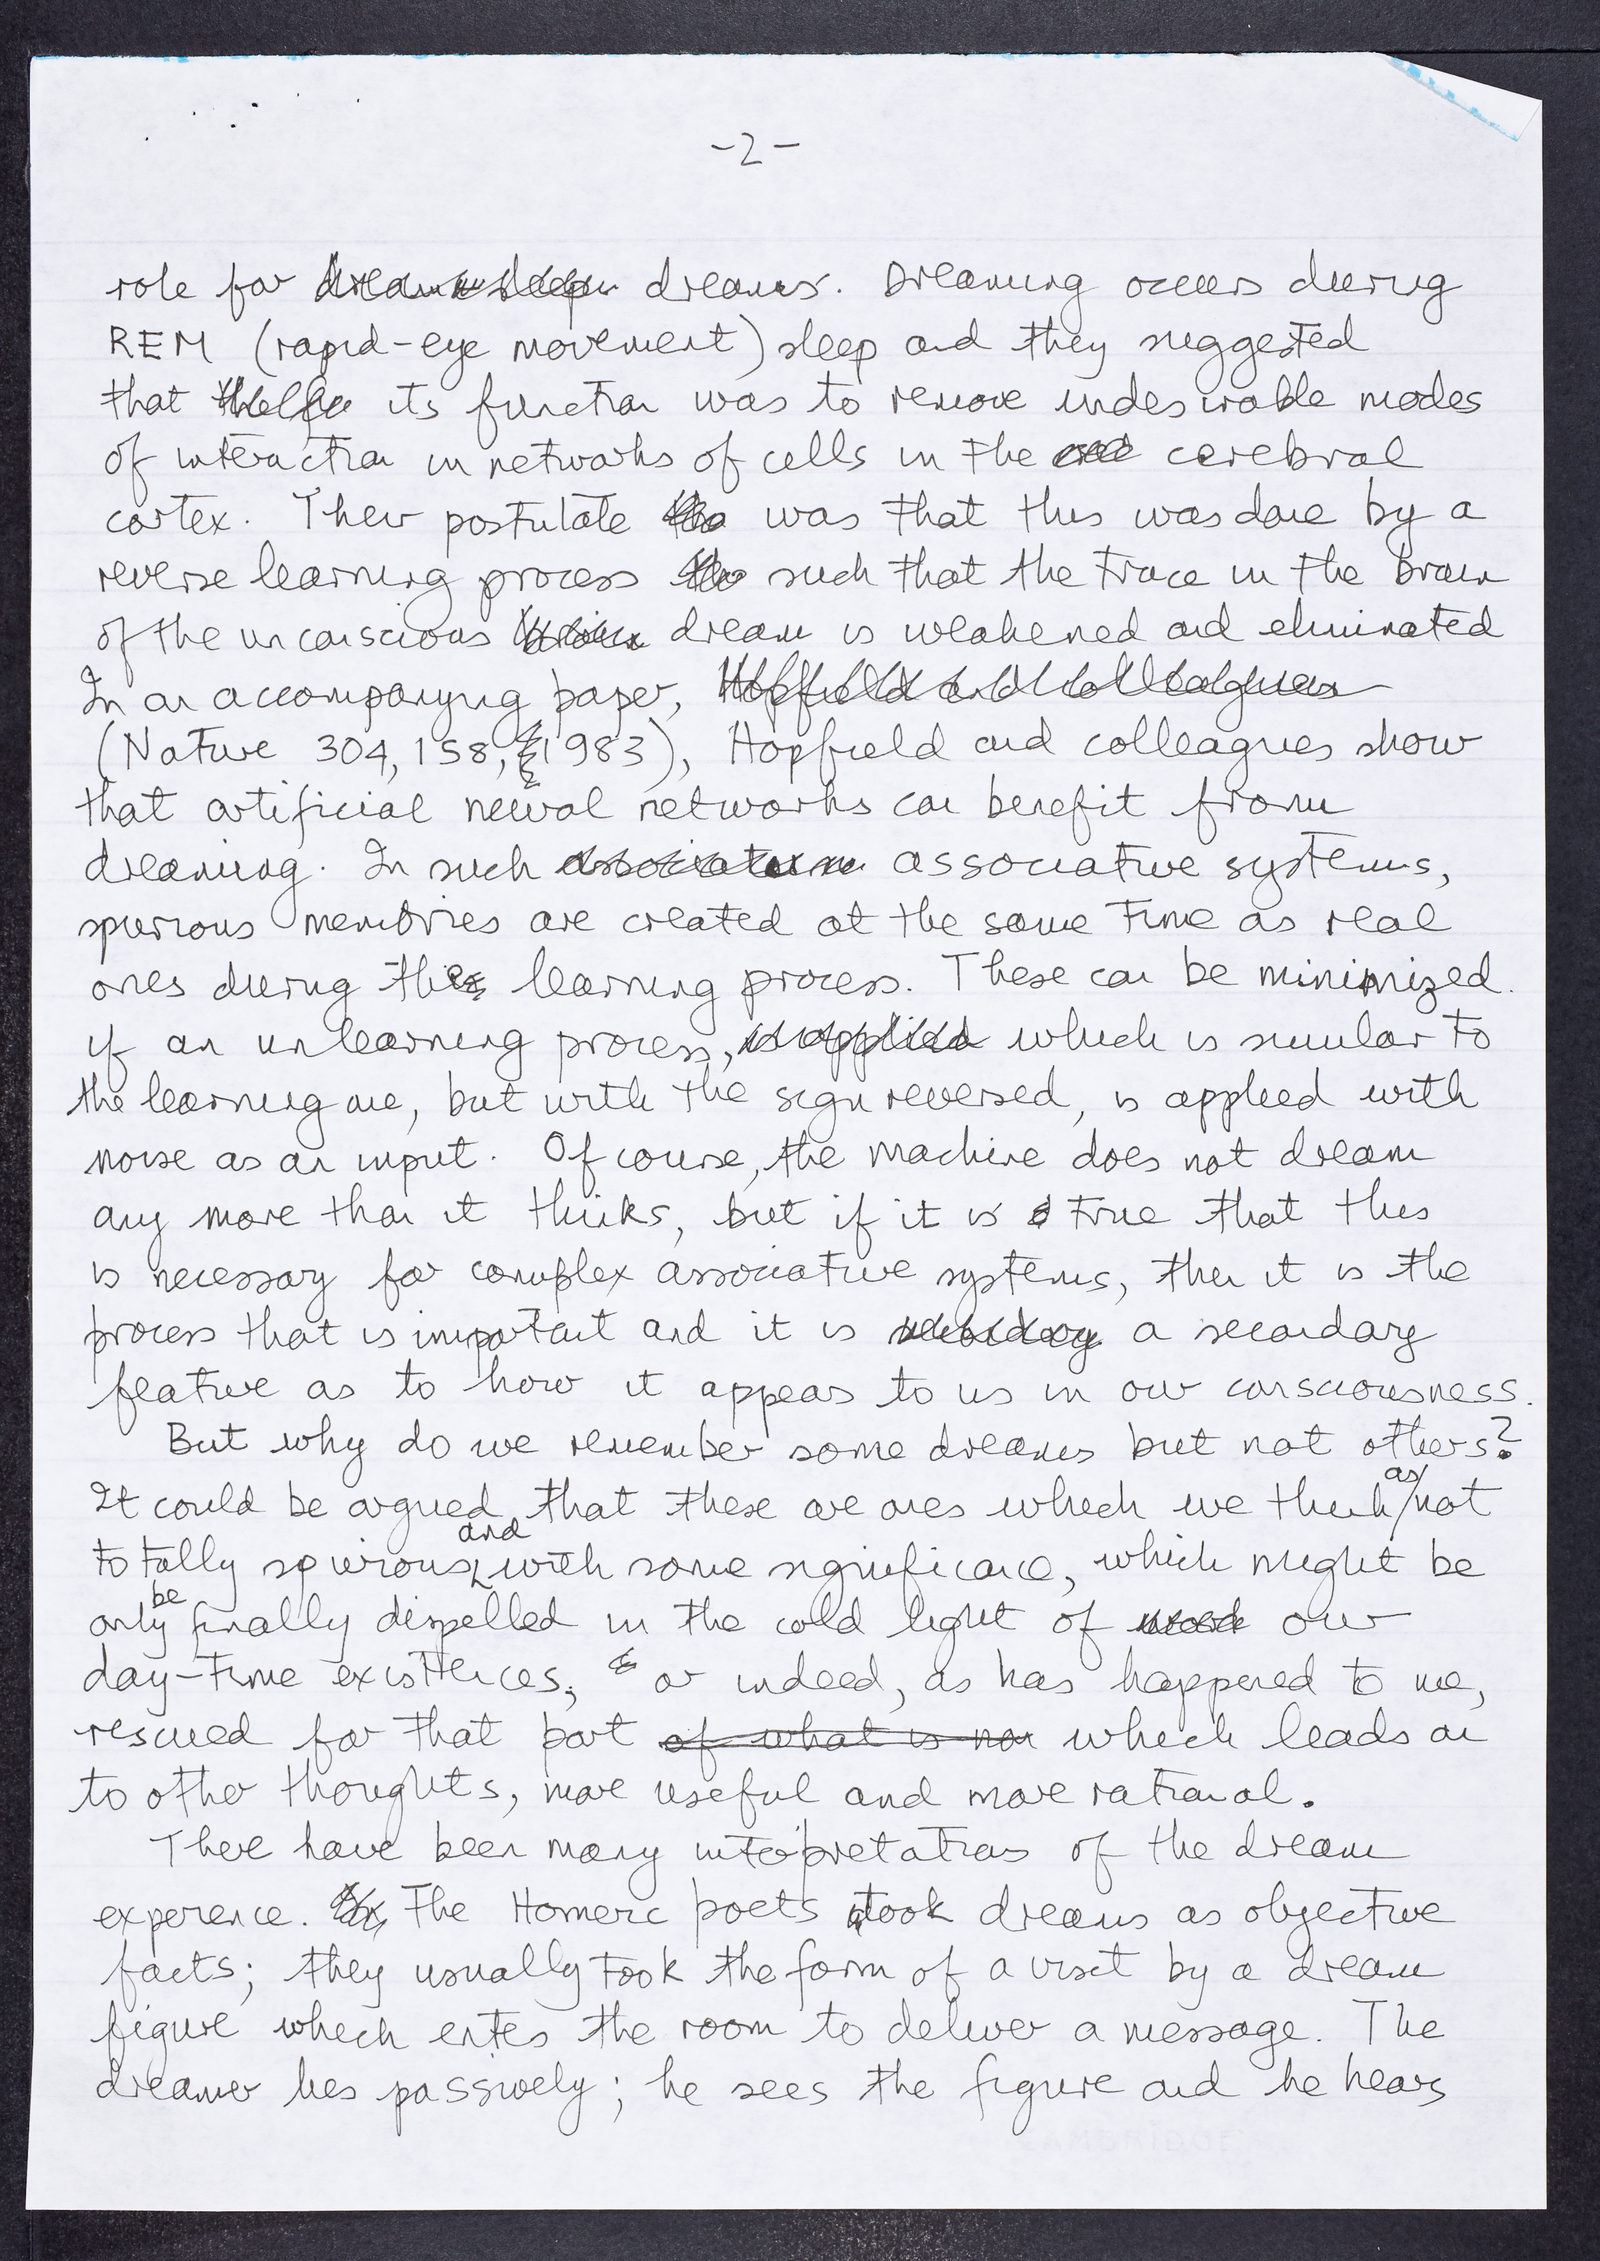 -2-
role for dreams. Dreaming occurs during
REM (rapid-eye movement) sleep and they suggested
that its function was to remove undesirable modes
of interaction in networks of cells in the cerebral
cortex. Their postulate was that this was done by a
reverse learning process such that the trace in the brain
of the unconscious dream is weakened and eliminated
In an accompanying paper, Hopfield and colleagues
(Nature 304, 158, 1983), Hopfield and colleagues show
that artificial neural networks can benefit from
dreaming. In such associative systems,
spurious memories are created at the same time as real
ones during the learning process. These can be minimized
if an unlearning process, is applied which is similar to
the learning one, but with the sign reversed, is applied with
noise as an input. Of course, the machine does not dream
any more than it thinks, but if it is true that this
is necessary for complex associative systems, then it is the
process that is important and it is a secondary
feature as to how it appears to us in our consciousness.
But why do we remember some dreams but not others?
It could be argued that these are ones which we think as not
totally spurious and with some significance, which might be
only be finally dispelled in the cold light of our
day-time existences, or indeed, as has happened to me,
rescued for that part of what is non which leads on
to other thoughts, more useful and more rational.
There have been many interpretations of the dream
experience. The Homeric poets took dreams as objective
facts; they usually took the form of a visit by a dream
figure which enters the room to deliver a message. The
dreamer lies passively; he sees the figure and he hears